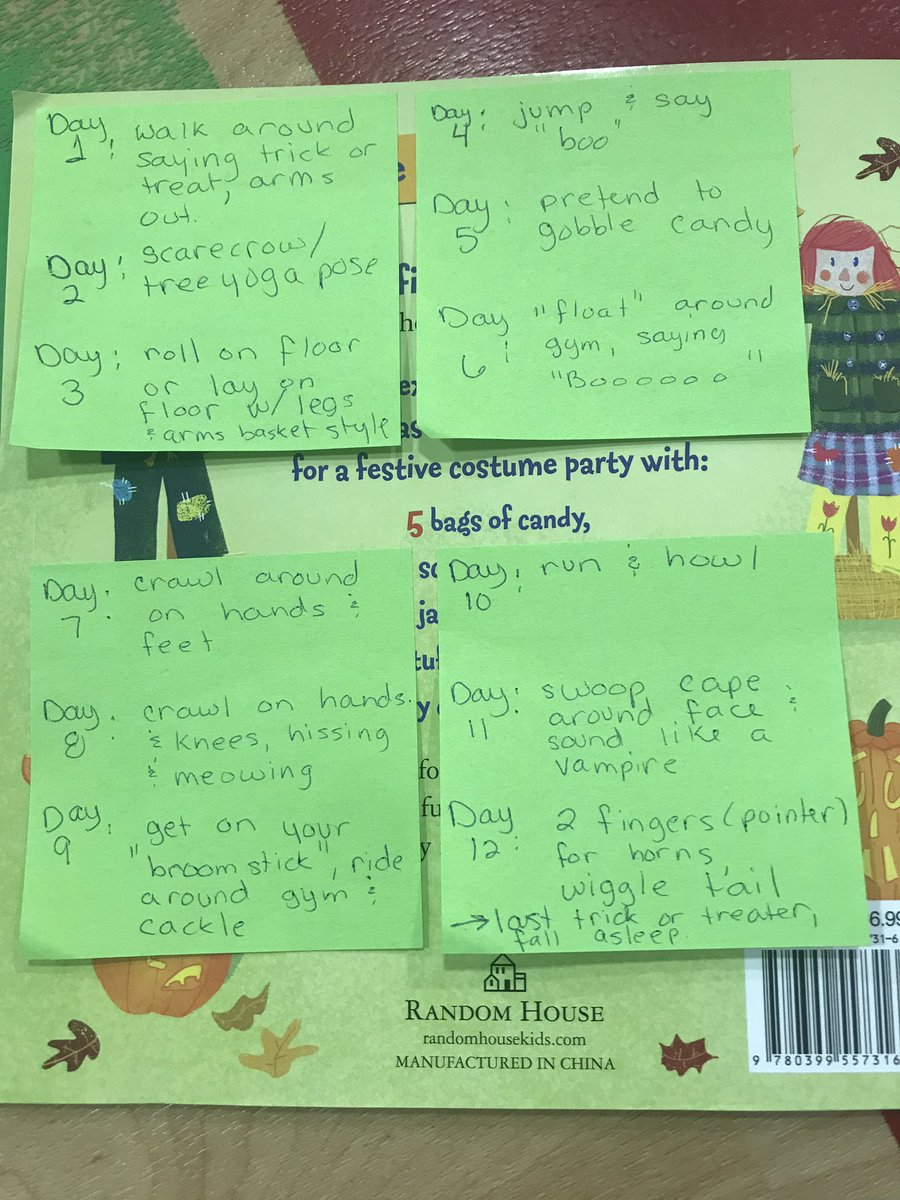 Day 1: walk around
saying trick or
treat, arms
out.
Day 2: scarecrow/
tree yoga pose
Day 3: roll on floor
or lay on
floor w/legs
& arms basket style
Day 4: jump & say
"boo"
Day 5: pretend to
gobble candy
Day 6: "float" around
gym, saying
"Boooooo"
for a festive costume party with:
5 bags of candy,
Day 7: crawl around
on hands &
feet
Day 8: crawl on hands
& knees, hissing
& meowing
Day 9: get on your
"broomstick", ride
around gym &
cackle
Day 10: run & howl
Day 11: swoop cape
around face &
sound like a
vampire
Day 12: 2 fingers (pointer)
for horns,
wiggle tail
→ last trick or treater,
fall asleep.
RANDOM HOUSE
randomhousekids.com
MANUFACTURED IN CHINA
6.99
731-6
9 780399 557316